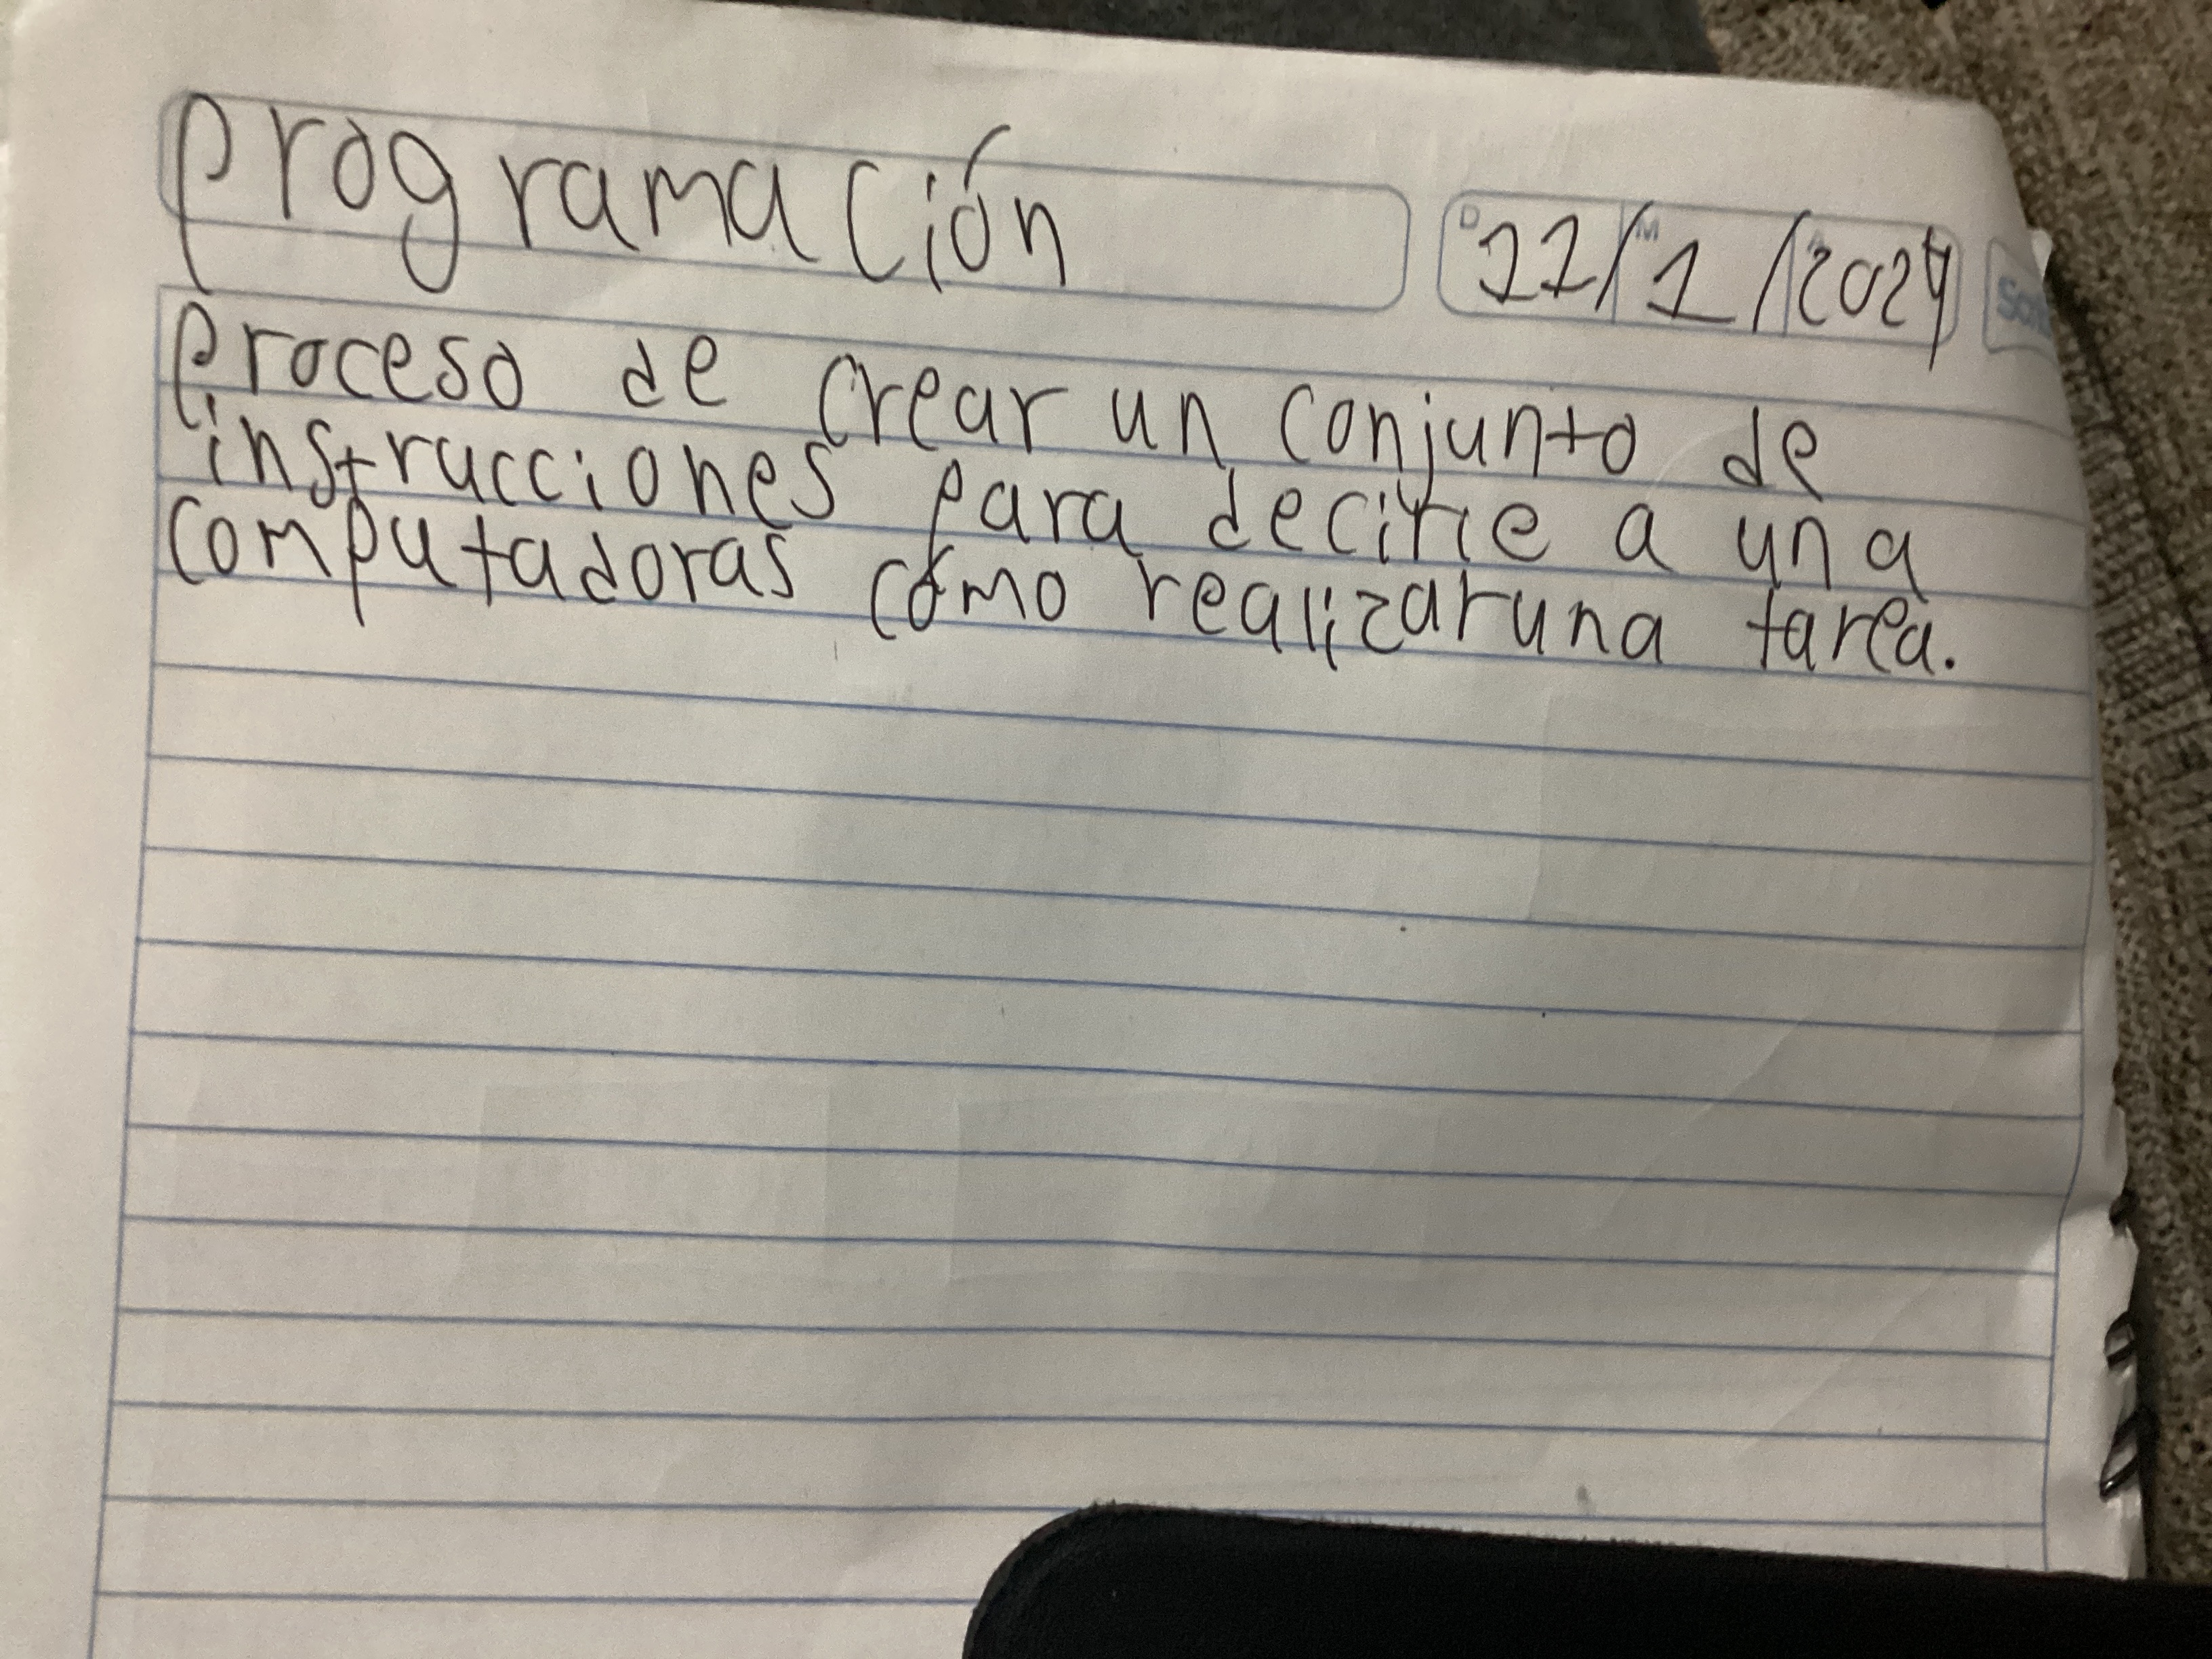 programación
D M
11/1/2024
proceso de crear un conjunto de
instrucciones para decirle a una
computadoras cómo realizar una tarea.